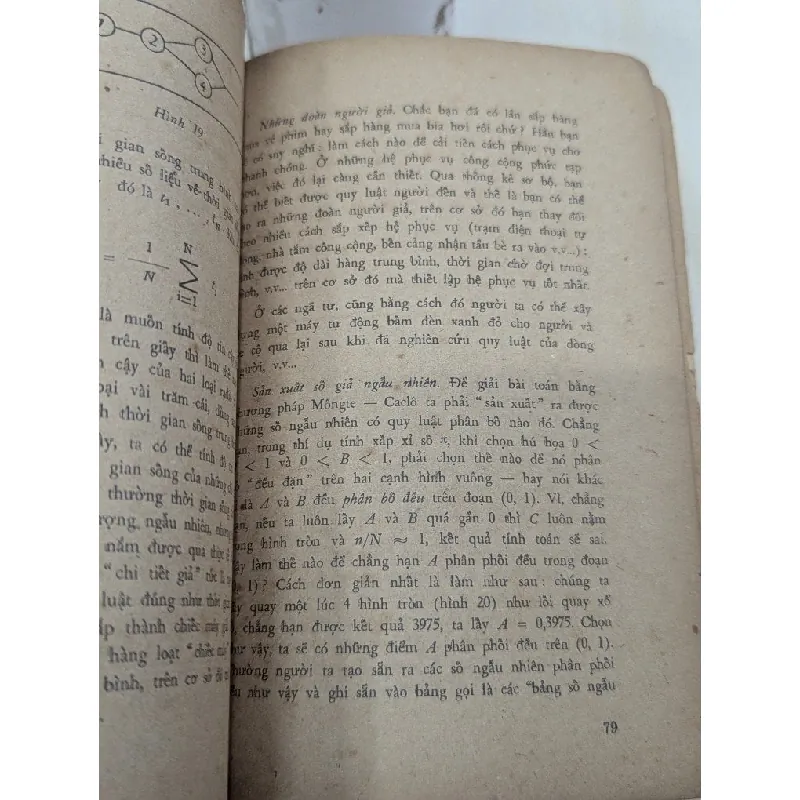 1
2
3
4
Hình 19
gian sống trung
nhiêu số liệu về thời gian
đó là t₁ , . . . , t
= 1/N N ∑ i=1 t
là muốn tính độ tin
trên giây thì làm
cậy của hai loại
vài trăm cái, dùng
thời gian sống trung
ta có thể tính
gian sống của những
thường thời gian sống
ngẫu nhiên, nhưng
nắm được qua
"chi tiết giả" rất là
luật đúng như thời gian
thành chiếc máy giả
hàng loạt "chiếc máy
bình, trên cơ sở đó
Những đoàn người giả. Chắc bạn đã có lần sắp hàng
vé phim hay sắp hàng mua bia hơi rồi chứ? Hẳn bạn
có suy nghĩ: làm cách nào để cải tiến cách phục vụ cho
nhanh chóng. Ở những hệ phục vụ công cộng phức tạp
việc đó lại càng cần thiết. Qua thống kê sơ bộ, bạn
thể biết được quy luật người đến và thế là bạn có thể
ra những đoàn người giả, trên cơ sở đó bạn thay đổi
nhiều cách sắp xếp hệ phục vụ (trạm điện thoại tự
nhà tắm công cộng, bến cảng nhận tầu bè ra vào v.v...) :
được độ dài hàng trung bình, thời gian chờ đợi trung
v.v... trên cơ sở đó mà thiết lập hệ phục vụ tốt nhất.
Ở các ngã tư, cũng bằng cách đó người ta có thể xây
một máy tự động bấm đèn xanh đỏ cho người và
cộ qua lại sau khi đã nghiên cứu quy luật của dòng
người, v.v...
Sản xuất số giả ngẫu nhiên. Để giải bài toán bằng
phương pháp Môngtơ — Caclô ta phải "sản xuất" ra được
những số ngẫu nhiên có quy luật phân bố nào đó. Chẳng
trong thí dụ tính xấp xỉ số π, khi chọn hú họa 0 <
< 1 và 0 < B < 1, phải chọn thế nào để nó phân
"đều đặn" trên hai cạnh hình vuông — hay nói khác
là A và B đều phân bố đều trên đoạn (0, 1). Vì, chẳng
nếu ta luôn lấy A và B quá gần 0 thì C luôn nằm
hình tròn và n/N ≈ 1, kết quả tính toán sẽ sai.
làm thế nào để chẳng hạn A phân phối đều trong đoạn
1) ? Cách đơn giản nhất là làm như sau : chúng ta
quay một lúc 4 hình tròn (hình 20) như lối quay xổ
chẳng hạn được kết quả 3975, ta lấy A = 0,3975. Chọn
như vậy, ta sẽ có những điểm A phân phối đều trên (0, 1).
thường người ta tạo sẵn ra các số ngẫu nhiên phân phối
như vậy và ghi sẵn vào bảng gọi là các "bảng số ngẫu
79